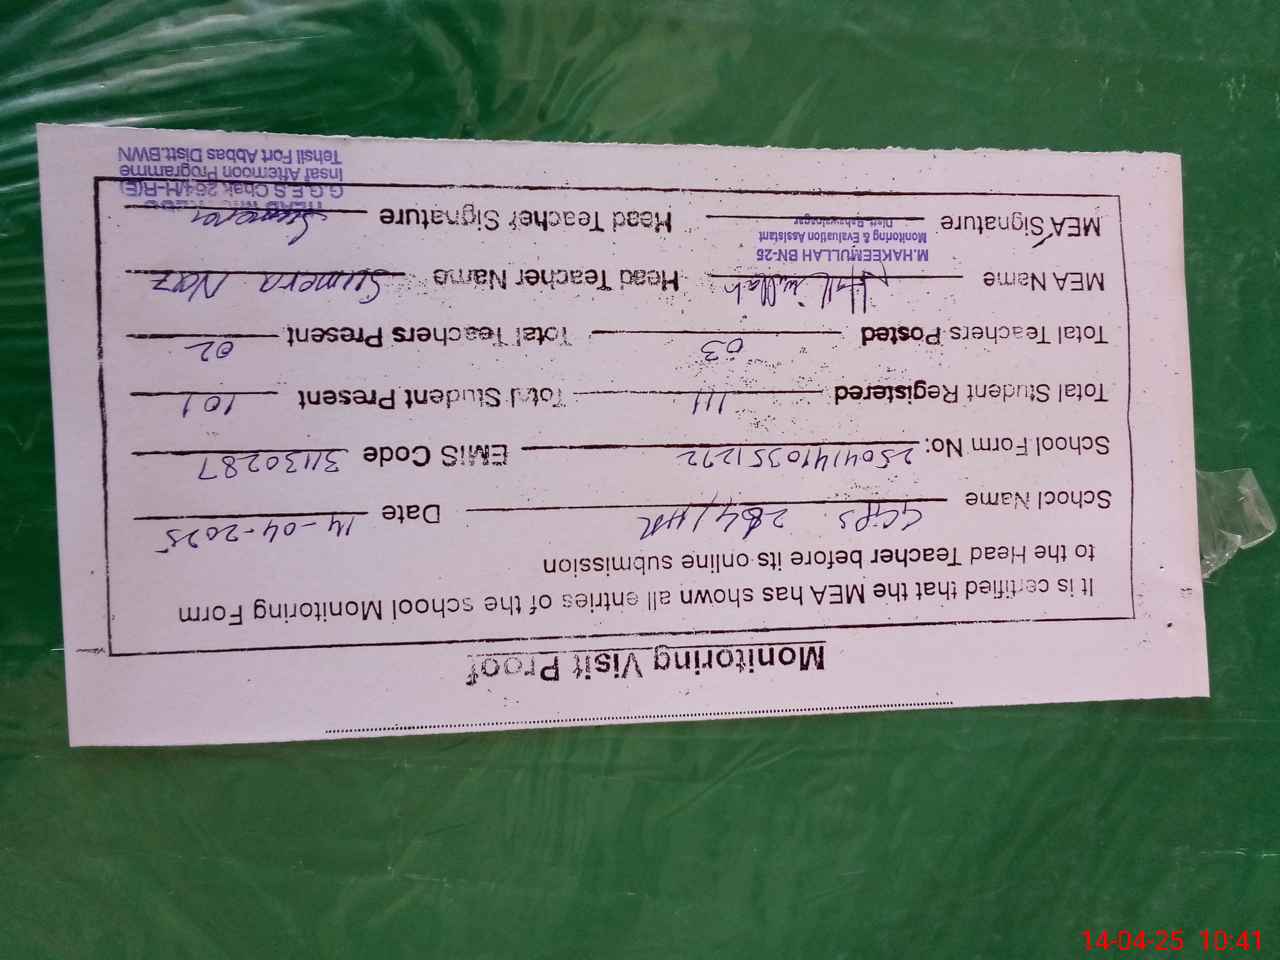 Monitoring Visit Proof
It is certified that the MEA has shown all entries of the school Monitoring Form
to the Head Teacher before its online submission
School Name GGPS 264/HR Date 14-04-2025
School Form No: 250414103551292 EMIS Code 31130287
Total Student Registered 111 Total Student Present 101
Total Teachers Posted 03 Total Teachers Present 02
MEA Name Head Teacher Name Sumera Naz
M.HAKEEMULLAH BN-25
Monitoring & Evaluation Assistant
Distt. Bahawalnagar
MEA Signature Head Teacher Signature Sumera
HEAD MISTRESS
G.G.E.S Chak 264/H-R(E)
Insaf Afternoon Programme
Tehsil Fort Abbas Distt.BWN
14-04-25 10:41